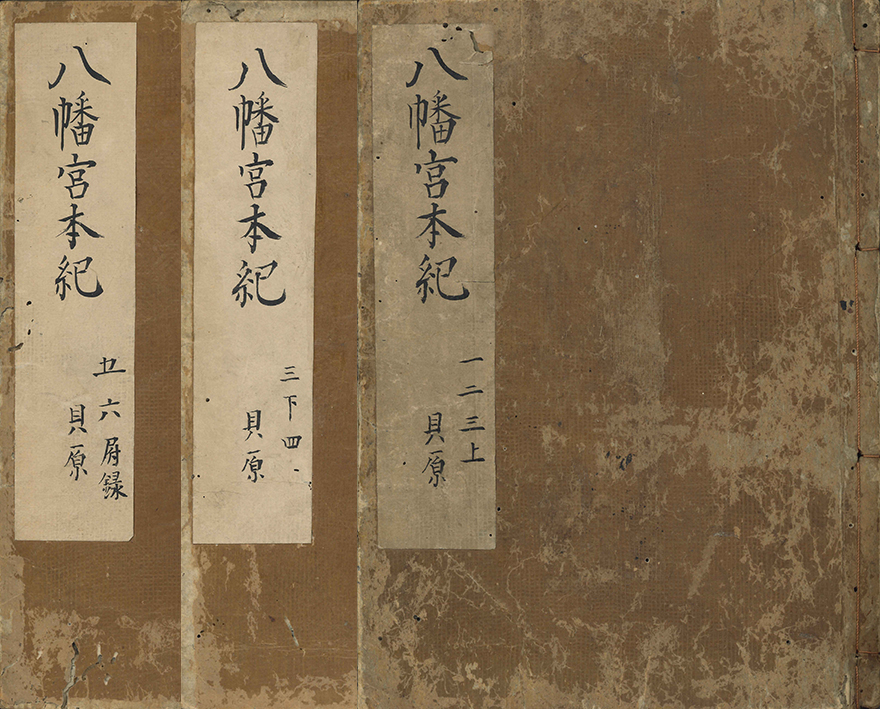 八幡宮本紀
一二三上
貝原
八幡宮本紀
三下四
貝原
八幡宮本紀
五六附録
貝原